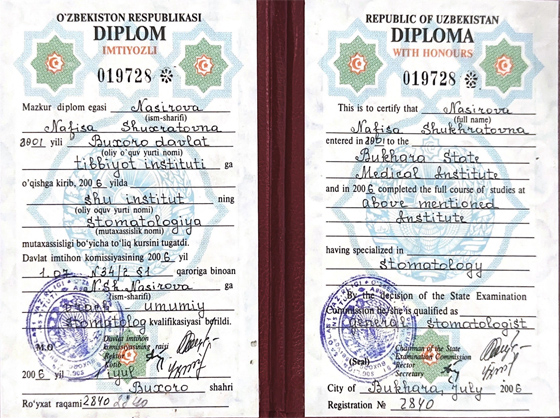 O'ZBEKISTON RESPUBLIKASI
DIPLOM
IMTIYOZLI
019728
Mazkur diplom egasi Nasirova
(ism-sharifi)
Nafisa Shuxratovna
2001 yili Buxoro davlat
(oliy o'quv yurti nomi)
tibbiyot instituti ga
o'qishga kirib, 2006 yilda
shu institut ning
(oliy oquv yurti nomi)
stomatologiya
(mutaxassislik nomi)
mutaxassisligi bo'yicha to'liq kursini tugatdi.
Davlat imtihon komissiyasining 2006 yil
1.07 N34/2 §1 qaroriga binoan
N.Sh. Nasirova ga
(ism-sharifi)
umumiy
stomatolog kvalifikasiyasi berildi.
M.O'
Davlat imtihon
komissiyasining raisi
Rektor
Kotib
2006 yil iyul
Buxoro shahri
Ro'yxat raqami 2840
REPUBLIC OF UZBEKISTAN
DIPLOMA
WITH HONOURS
019728
This is to certify that Nasirova
(full name)
Nafisa Shukhratovna
entered in 2001 to the
Bukhara State
Medical Institute
and in 2006 completed the full course of studies at
above mentioned
Institute
having specialized in
stomatology
By the decision of the State Examination
Commission he/she is qualified as
general stomatologist
(Seal)
Chairman of the State
Examination Commission
Rector
Secretary
City of Bukhara, july 2006
Registration № 2840